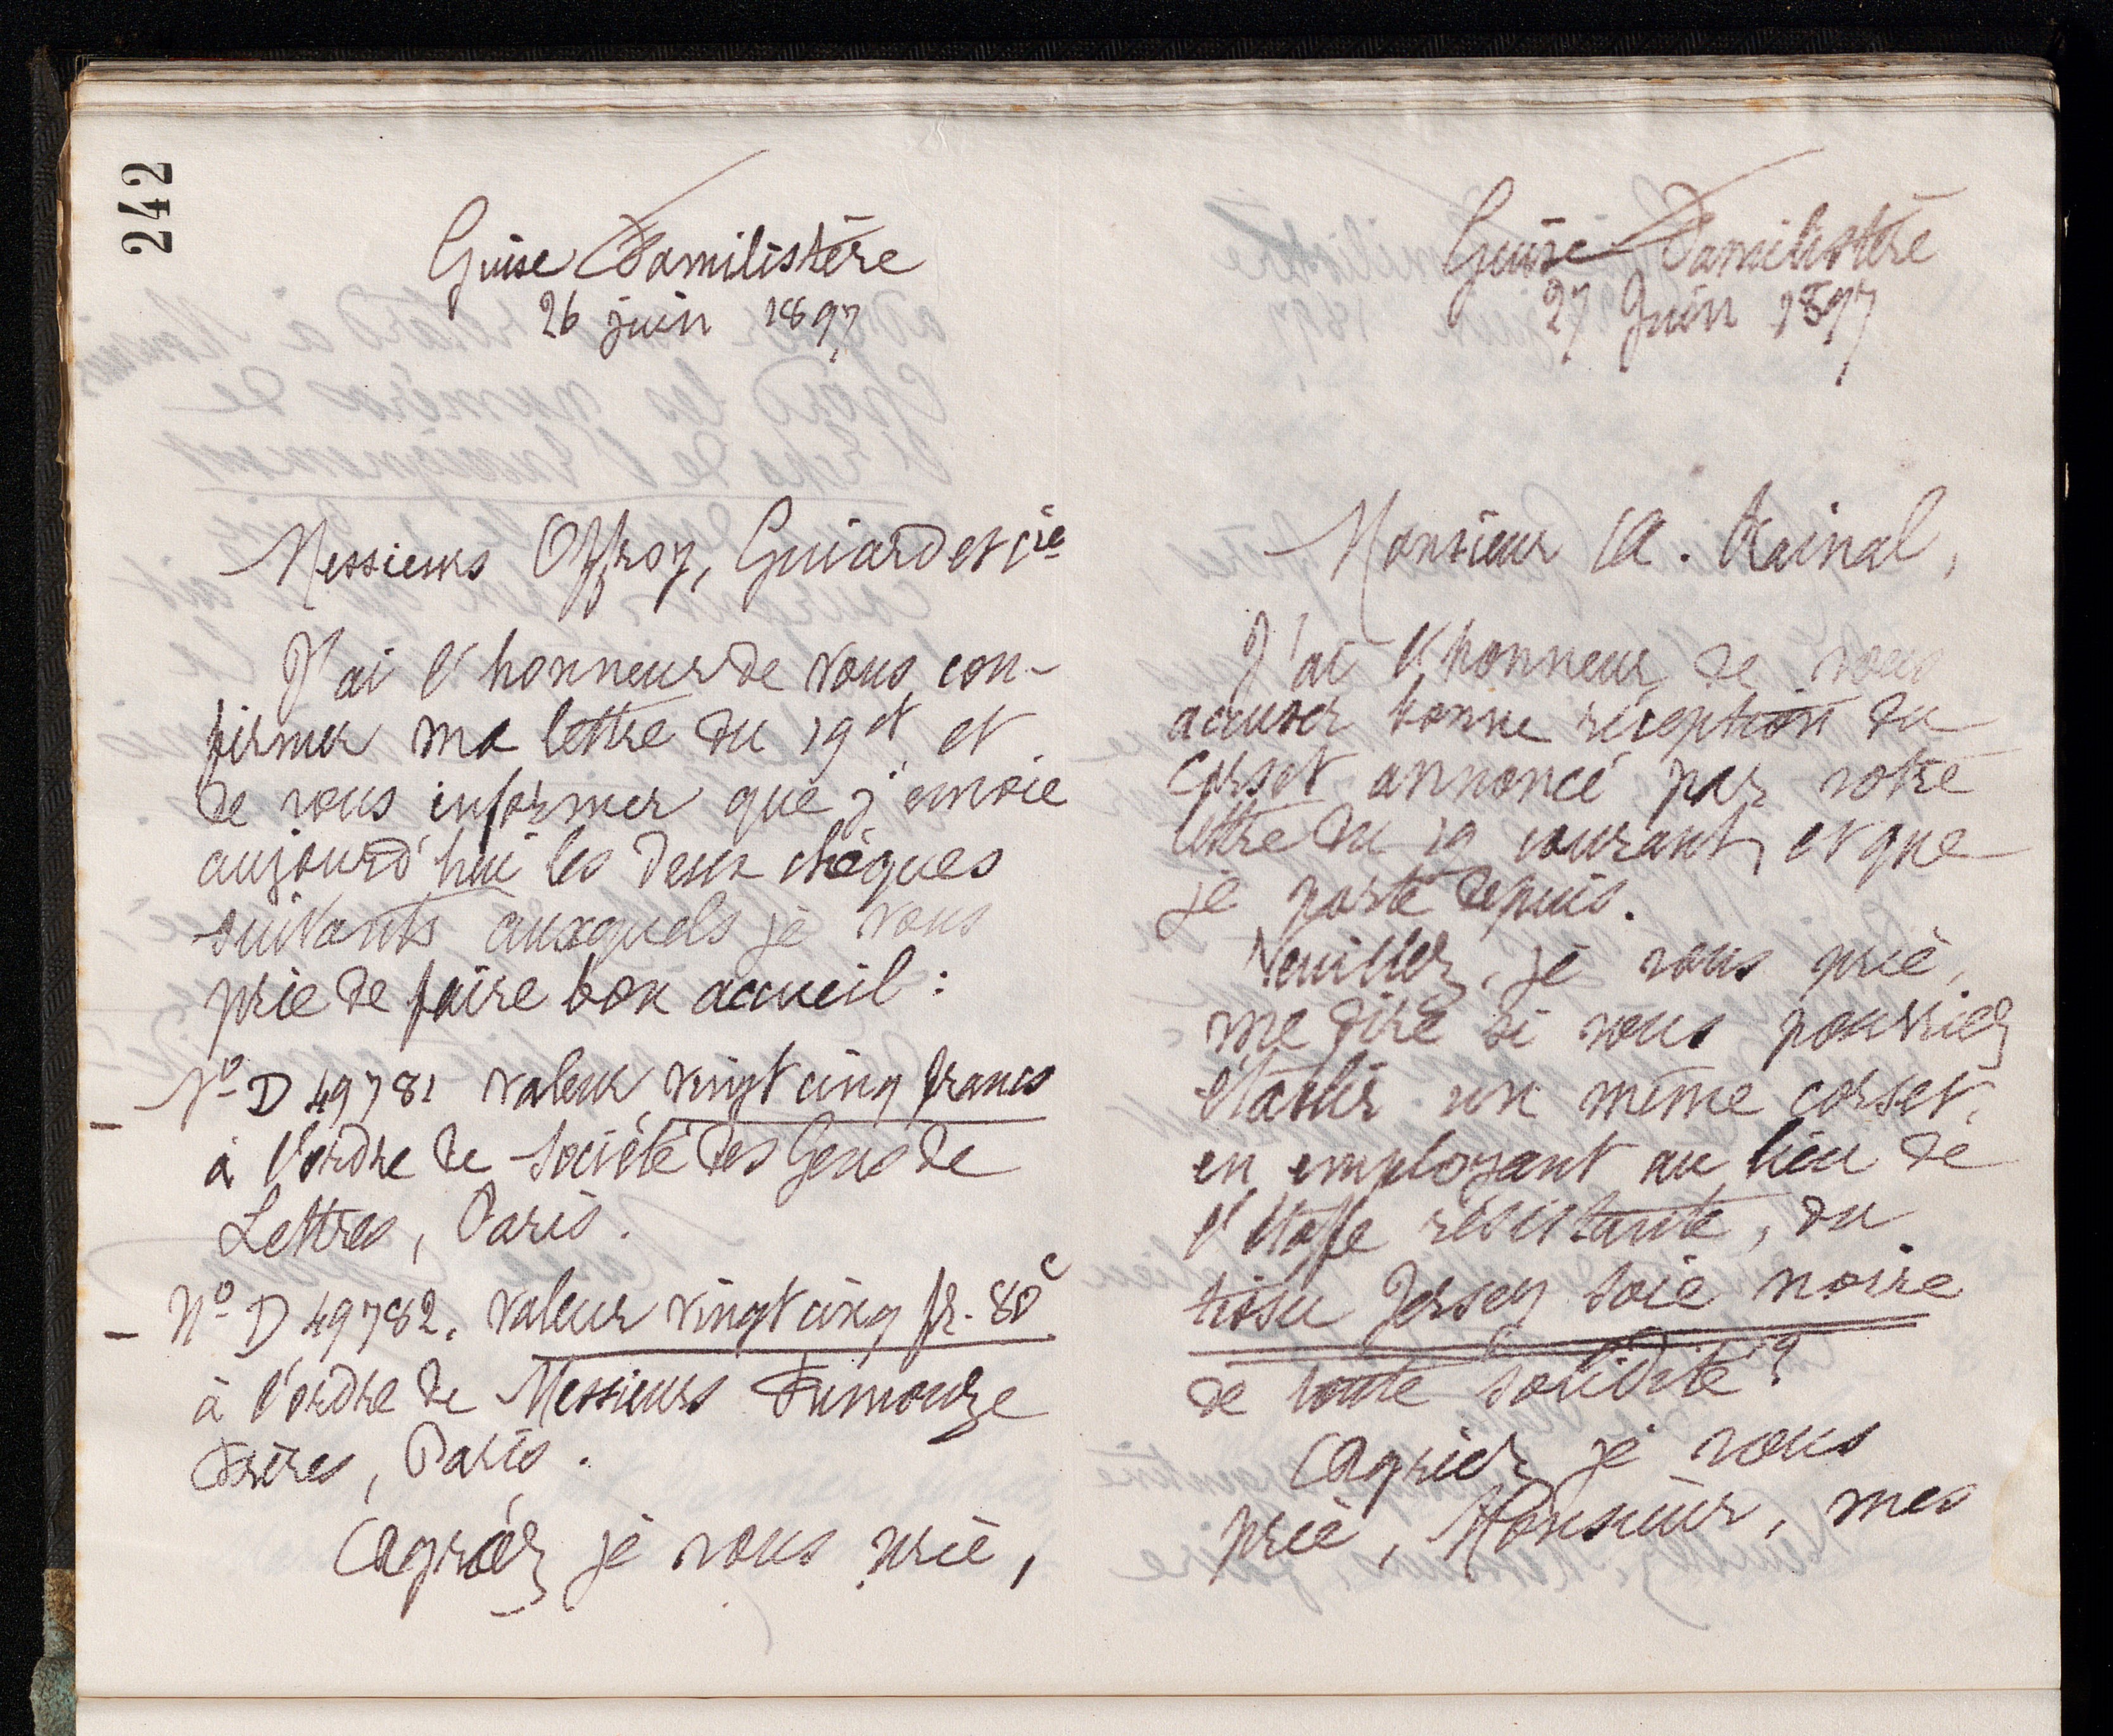 242
Guise Familistère
26 juin 1897
Messieurs Offroy, Guiard et Cie
J'ai l'honneur de vous con-
firmer ma lettre du 19 ct et
de vous informer que j'envoie
aujourd'hui les deux chèques
suivants auxquels je vous
prie de faire bon accueil :
- No D 49781 valeur vingt cinq francs
à l'ordre de Société des Gens de
Lettres, Paris.
- No D 49782. valeur vingt cinq fr. 80c
à l'ordre de Messieurs Fumouze
Frères, Paris.
Agréez je vous prie,
Guise Familistère
27 Juin 1897
Monsieur A. Rainal,
J'ai l'honneur de vous
accuser bonne réception du
corset annoncé par votre
lettre du 19 courant, et que
je porte depuis.
Veuillez, je vous prie,
me dire si vous pourriez
établir un même corset,
en employant au lieu de
l'étoffe résistante, du
tissu Jersey soie noire
de toute solidité ?
Agréez je vous
prie, Monsieur, mes